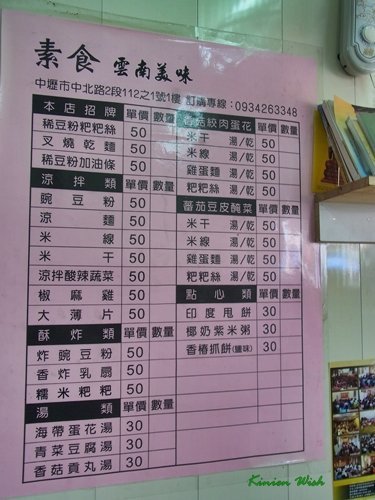 素食 雲南美味
中壢市中北路2段112之1號1樓 訂購專線：0934263348
本店招牌 單價 數量
稀豆粉粑粑絲 50
叉燒乾麵 50
稀豆粉加油條 50
涼拌類 單價 數量
豌豆粉 50
涼麵 50
米線 50
米干 50
涼拌酸辣蔬菜 50
椒麻雞 50
大薄片 50
酥炸類 單價 數量
炸豌豆粉 50
香炸乳扇 50
糯米粑粑 50
湯類 單價 數量
海帶蛋花湯 30
青菜豆腐湯 30
香菇貢丸湯 30
香菇絞肉蛋花 單價 數量
米干 湯/乾 50
米線 湯/乾 50
雞蛋麵 湯/乾 50
粑粑絲 湯/乾 50
蕃茄豆皮醃菜 單價 數量
米干 湯/乾 50
米線 湯/乾 50
雞蛋麵 湯/乾 50
粑粑絲 湯/乾 50
點心類 單價 數量
印度甩餅 30
椰奶紫米粥 30
香椿抓餅(鹽味) 30
Kinien Wish